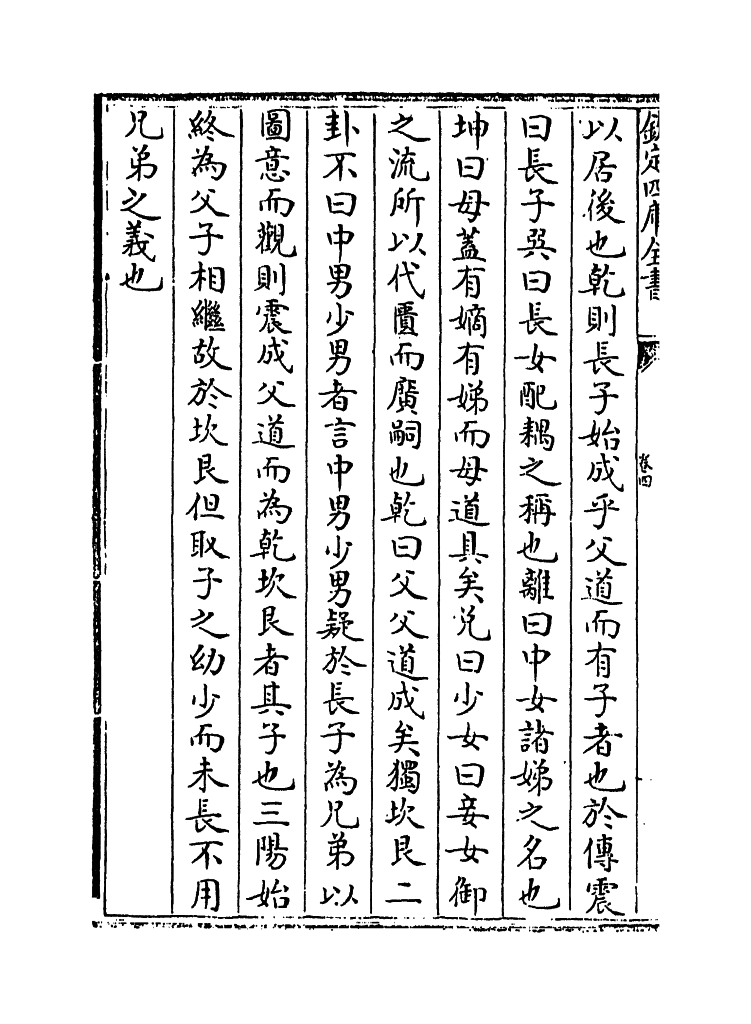 欽定四庫全書
卷四
以居後也乾則長子始成乎父道而有子者也於傳震
曰長子巽曰長女配耦之稱也離曰中女諸娣之名也
坤曰母蓋有嫡有娣而母道具矣兌曰少女曰妾女御
之流所以代匱而廣嗣也乾曰父父道成矣獨坎艮二
卦不曰中男少男者言中男少男疑於長子為兄弟以
圖意而觀則震成父道而為乾坎艮者其子也三陽始
終為父子相繼故於坎艮但取子之幼少而未長不用
兄弟之義也